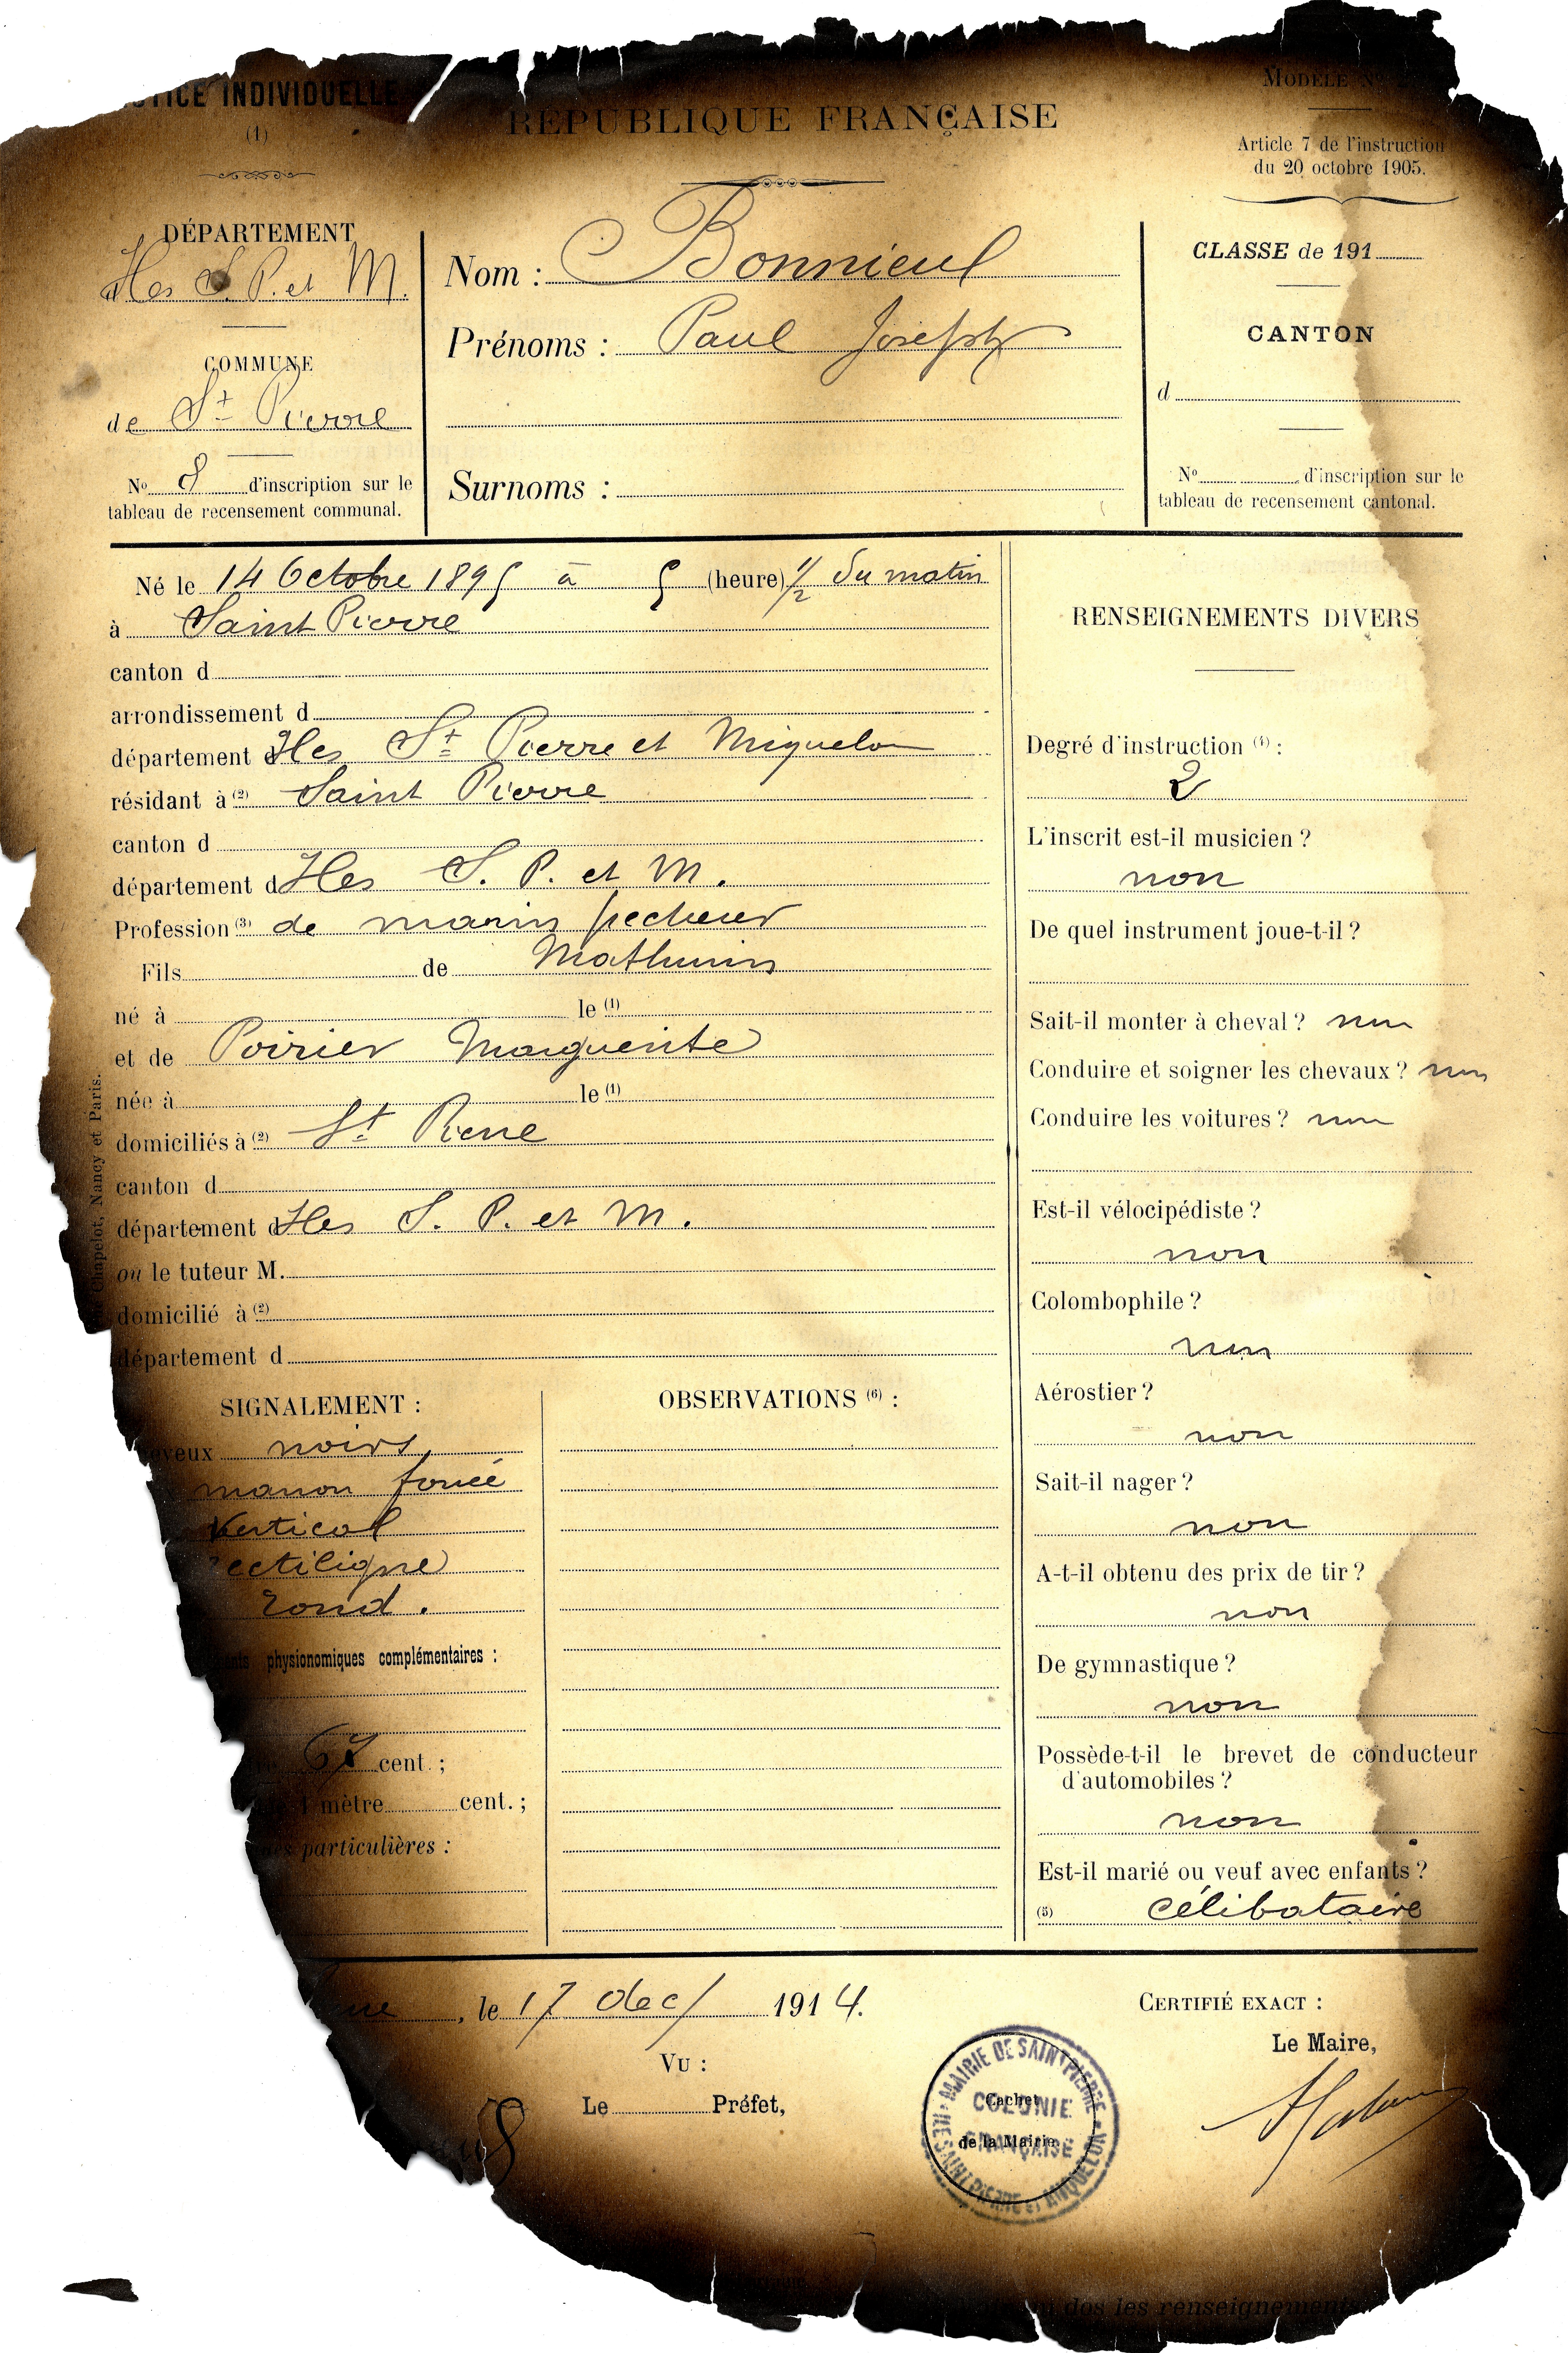 NOTICE INDIVIDUELLE
(1)
RÉPUBLIQUE FRANÇAISE
MODÈLE N°
Article 7 de l'instruction
du 20 octobre 1905.
DÉPARTEMENT
Iles S. P. et M.
COMMUNE
de St Pierre
No 8 d'inscription sur le
tableau de recensement communal.
Nom : Bonnieul
Prénoms : Paul Joseph
Surnoms :
CLASSE de 191
CANTON
d
No d'inscription sur le
tableau de recensement cantonal.
Né le 14 Octobre 1895 à 5 (heure) 1/2 du matin
à Saint Pierre
canton d
arrondissement d
département d Iles St Pierre et Miquelon
résidant à (2) Saint Pierre
canton d
département d Iles S. P. et M.
Profession (3) de marin pecheur
Fils de Mathurin
né à le (1)
et de Poirier Marguerite
née à le (1)
domiciliés à (2) St Pierre
canton d
département d Iles S. P. et M.
ou le tuteur M.
domicilié à (2)
département d
Chapelot, Nancy et Paris.
SIGNALEMENT :
noirs
marron foncé
Vertical
rectiligne
rond.
physionomiques complémentaires :
67 cent. ;
1 mètre cent. ;
particulières :
OBSERVATIONS (6) :
RENSEIGNEMENTS DIVERS
Degré d'instruction (4) :
2
L'inscrit est-il musicien ?
non
De quel instrument joue-t-il ?
Sait-il monter à cheval ? non
Conduire et soigner les chevaux ? non
Conduire les voitures ? non
Est-il vélocipédiste ?
non
Colombophile ?
non
Aérostier ?
non
Sait-il nager ?
non
A-t-il obtenu des prix de tir ?
non
De gymnastique ?
non
Possède-t-il le brevet de conducteur
d'automobiles ?
non
Est-il marié ou veuf avec enfants ?
(5) célibataire
, le 17 dec/ 1914.
VU :
Le Préfet,
CERTIFIÉ EXACT :
Le Maire,
MAIRIE DE SAINT PIERRE
COLONIE
FRANÇAISE
ILES SAINT PIERRE et MIQUELON
Cachet
de la Mairie.
dos les renseignements